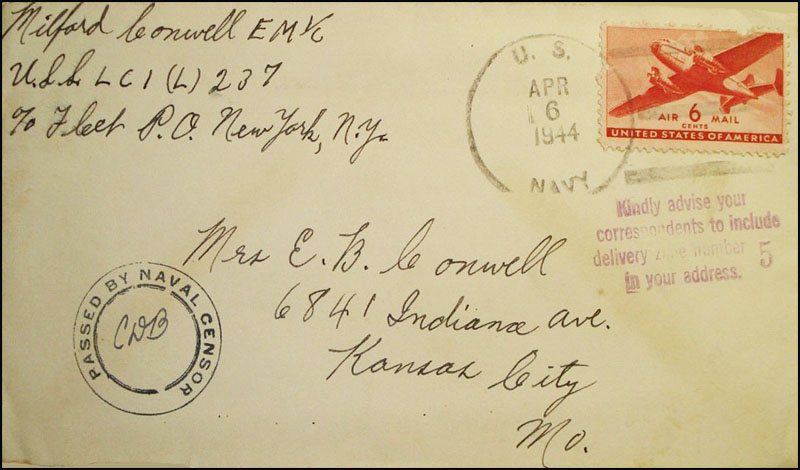 Milford Conwell EM 1/C
U.S.S. LCI (L) 237
℅ Fleet P.O. New York, N.Y.
U. S.
APR
6
1944
NAVY
AIR 6 MAIL
CENTS
UNITED STATES OF AMERICA
Kindly advise your
correspondents to include
delivery zone number 5
in your address.
Mrs E. B. Conwell
6841 Indiana ave.
Kansas City
Mo.
PASSED BY NAVAL CENSOR
CDB